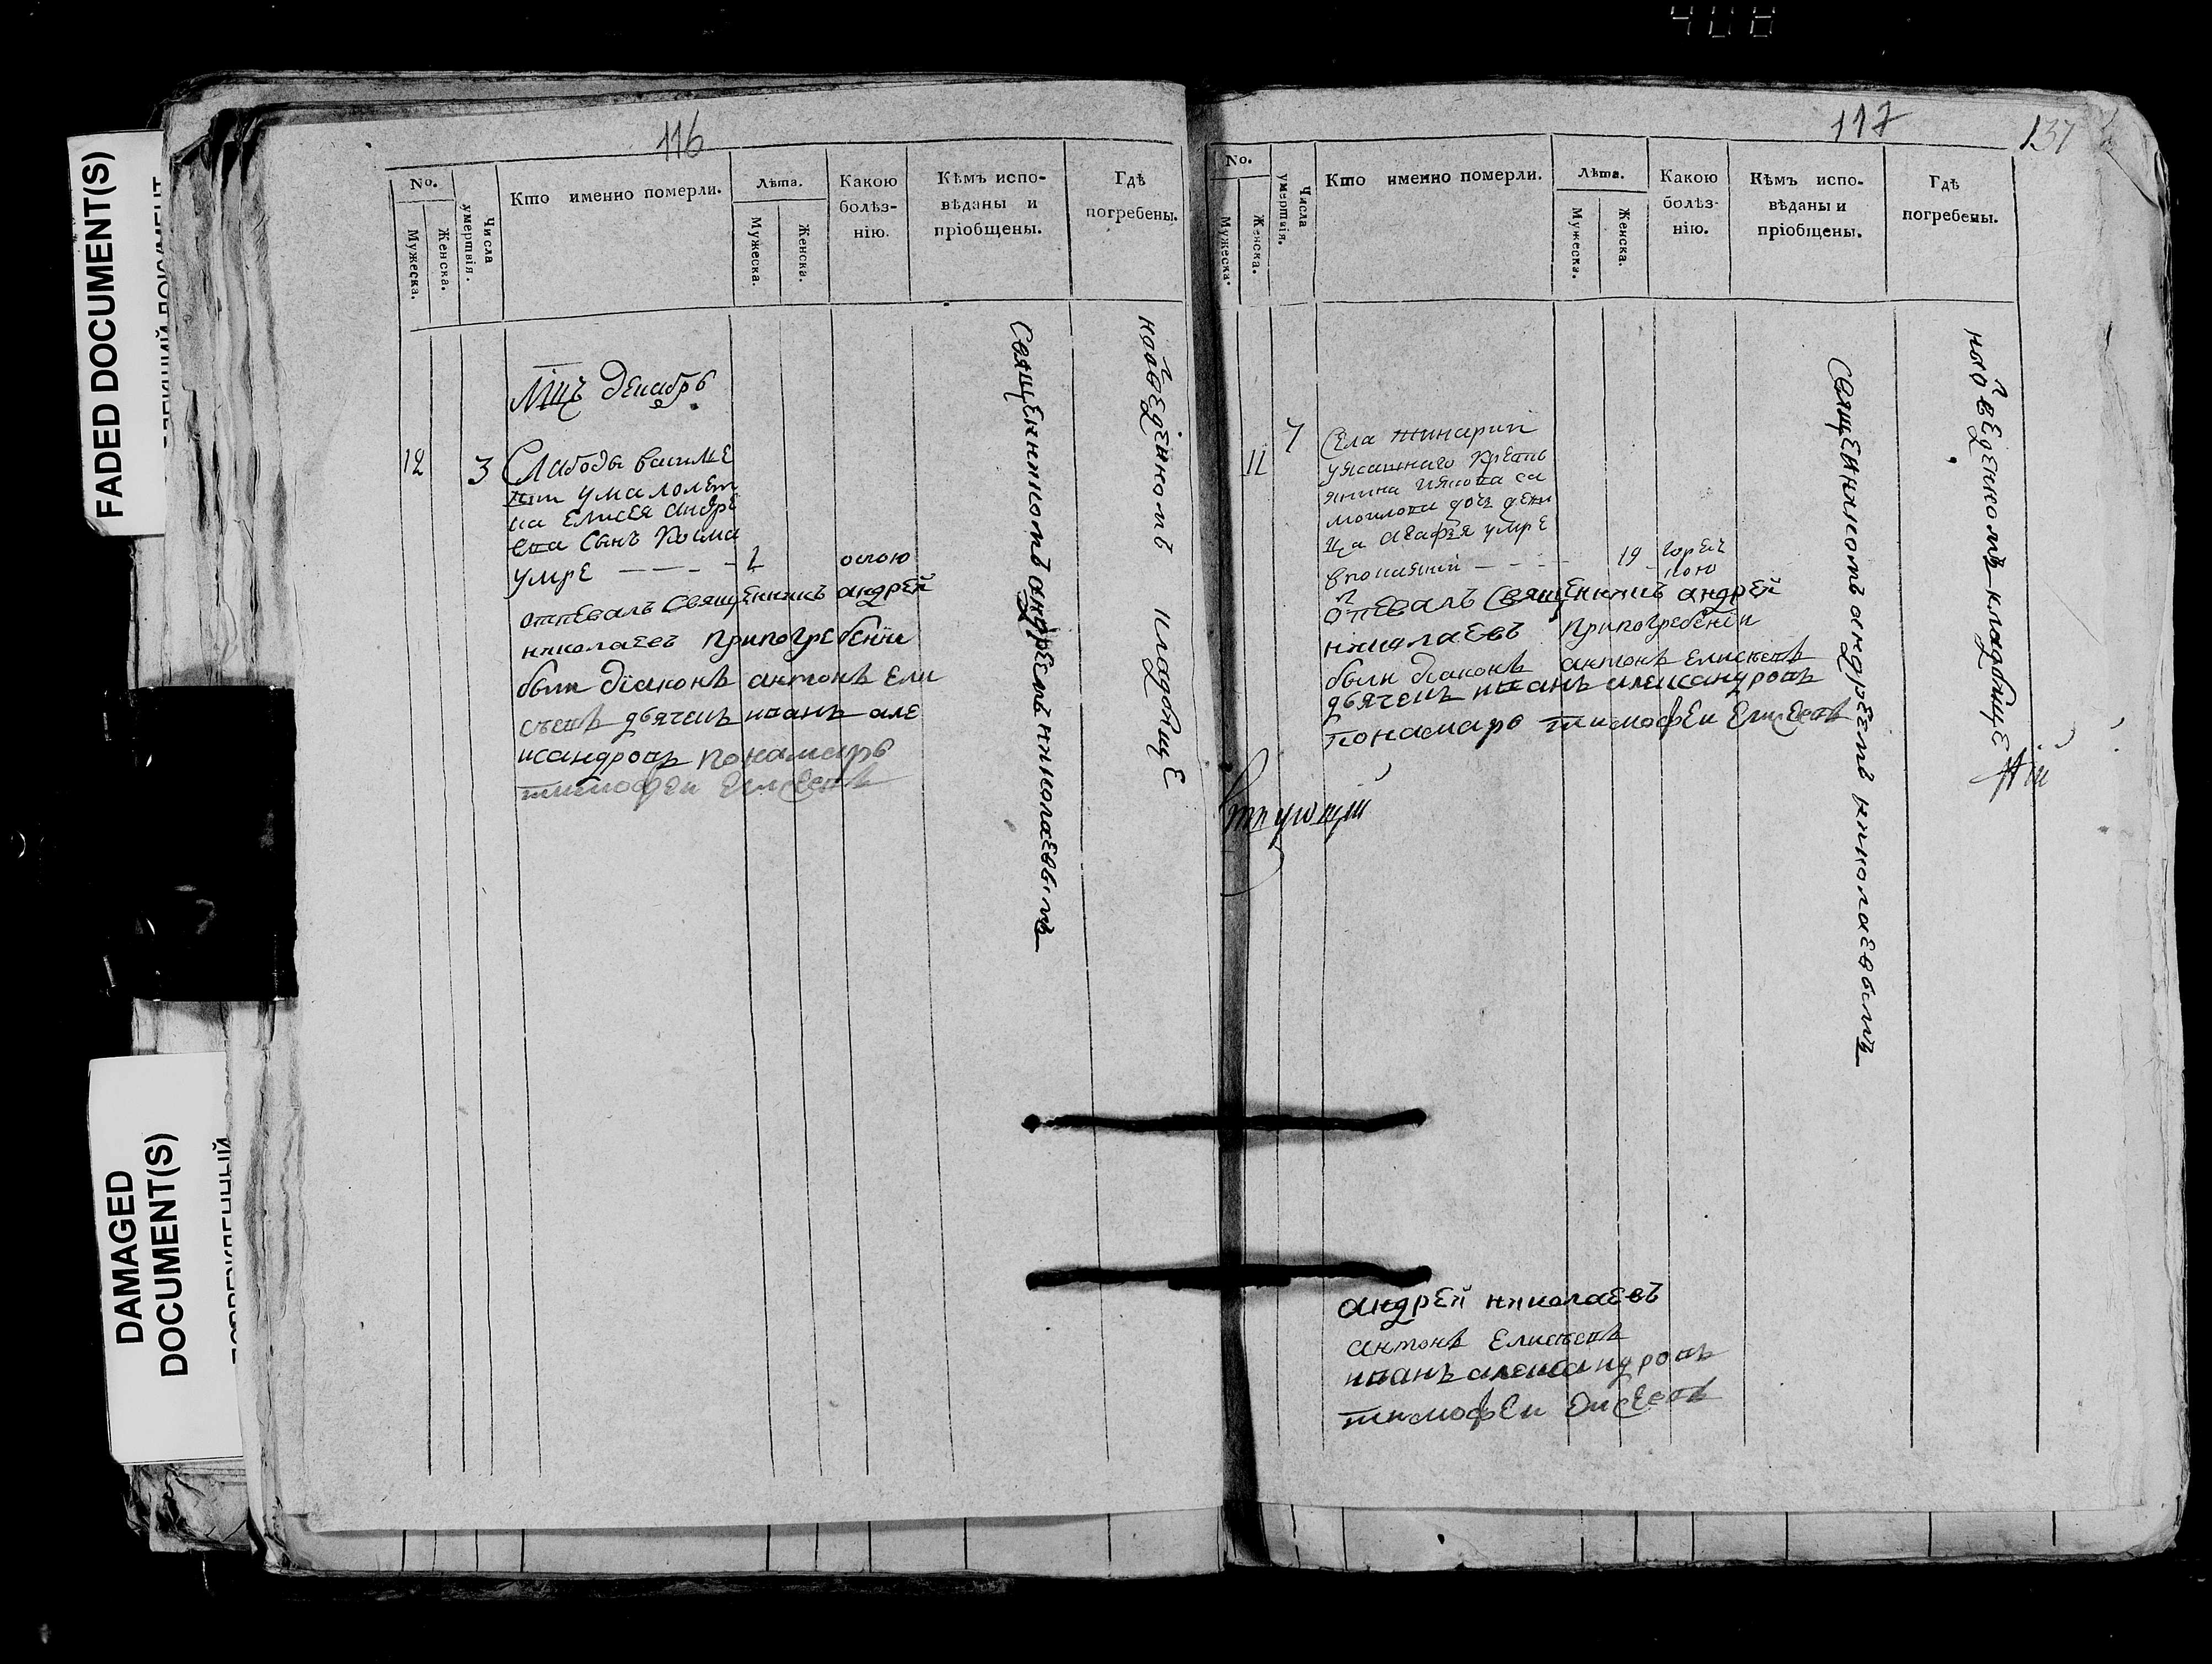 408
FADED DOCUMENT(S)
DAMAGED
DOCUMENT(S)
116
No.
Мужеска.
Женска.
Числа
умертвія.
Кто именно померли.
Лѣта.
Мужеска.
Женска.
Какою
болѣз-
нію.
Кѣмъ испо-
вѣданы и
пріобщены.
Гдѣ
погребены.
Мцъ декабрь
12
3
Слабоды
умалолетъ
на Елисея андре
ева сынъ косма
умре
1
оспою
отпевалъ Священникъ андрей
николаевъ припогребении
были діаконъ антонъ ели
съевъ дьячекъ иванъ але
ксандровъ понамарь
тимофеи Елисеевъ
Священникомъ андреемъ николаевымъ
кладбище
117
137
No.
Мужеска.
Женска.
Числа
умертвія.
Кто именно померли.
Лѣта.
Мужеска.
Женска.
Какою
болѣз-
нію.
Кѣмъ испо-
вѣданы и
пріобщены.
Гдѣ
погребены.
11
7
Села
крестья
янина
дочь деви
ца агафія умре
19
горяч
кою
отпевалъ Священникъ андрей
николаевъ припогребеніи
были діаконъ антонъ елисѣевъ
дьячекъ иванъ александровъ
понамарь тимофеи Елисеевъ
Священникомъ андреемъ николаевымъ
кладбище
андрей николаевъ
антонъ елисѣевъ
иванъ александровъ
тимофеи Елисеевъ